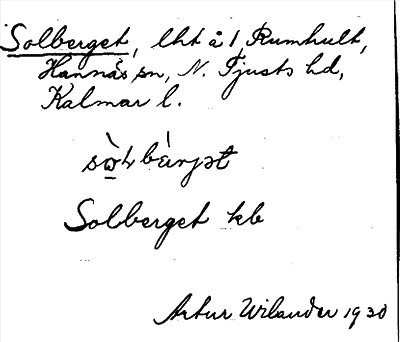 Solberget, lht å 1 Rumhult,
Hannäs sn, N. Tjusts hd,
Kalmar l.
Solberget kb
Artur Wilander 1930